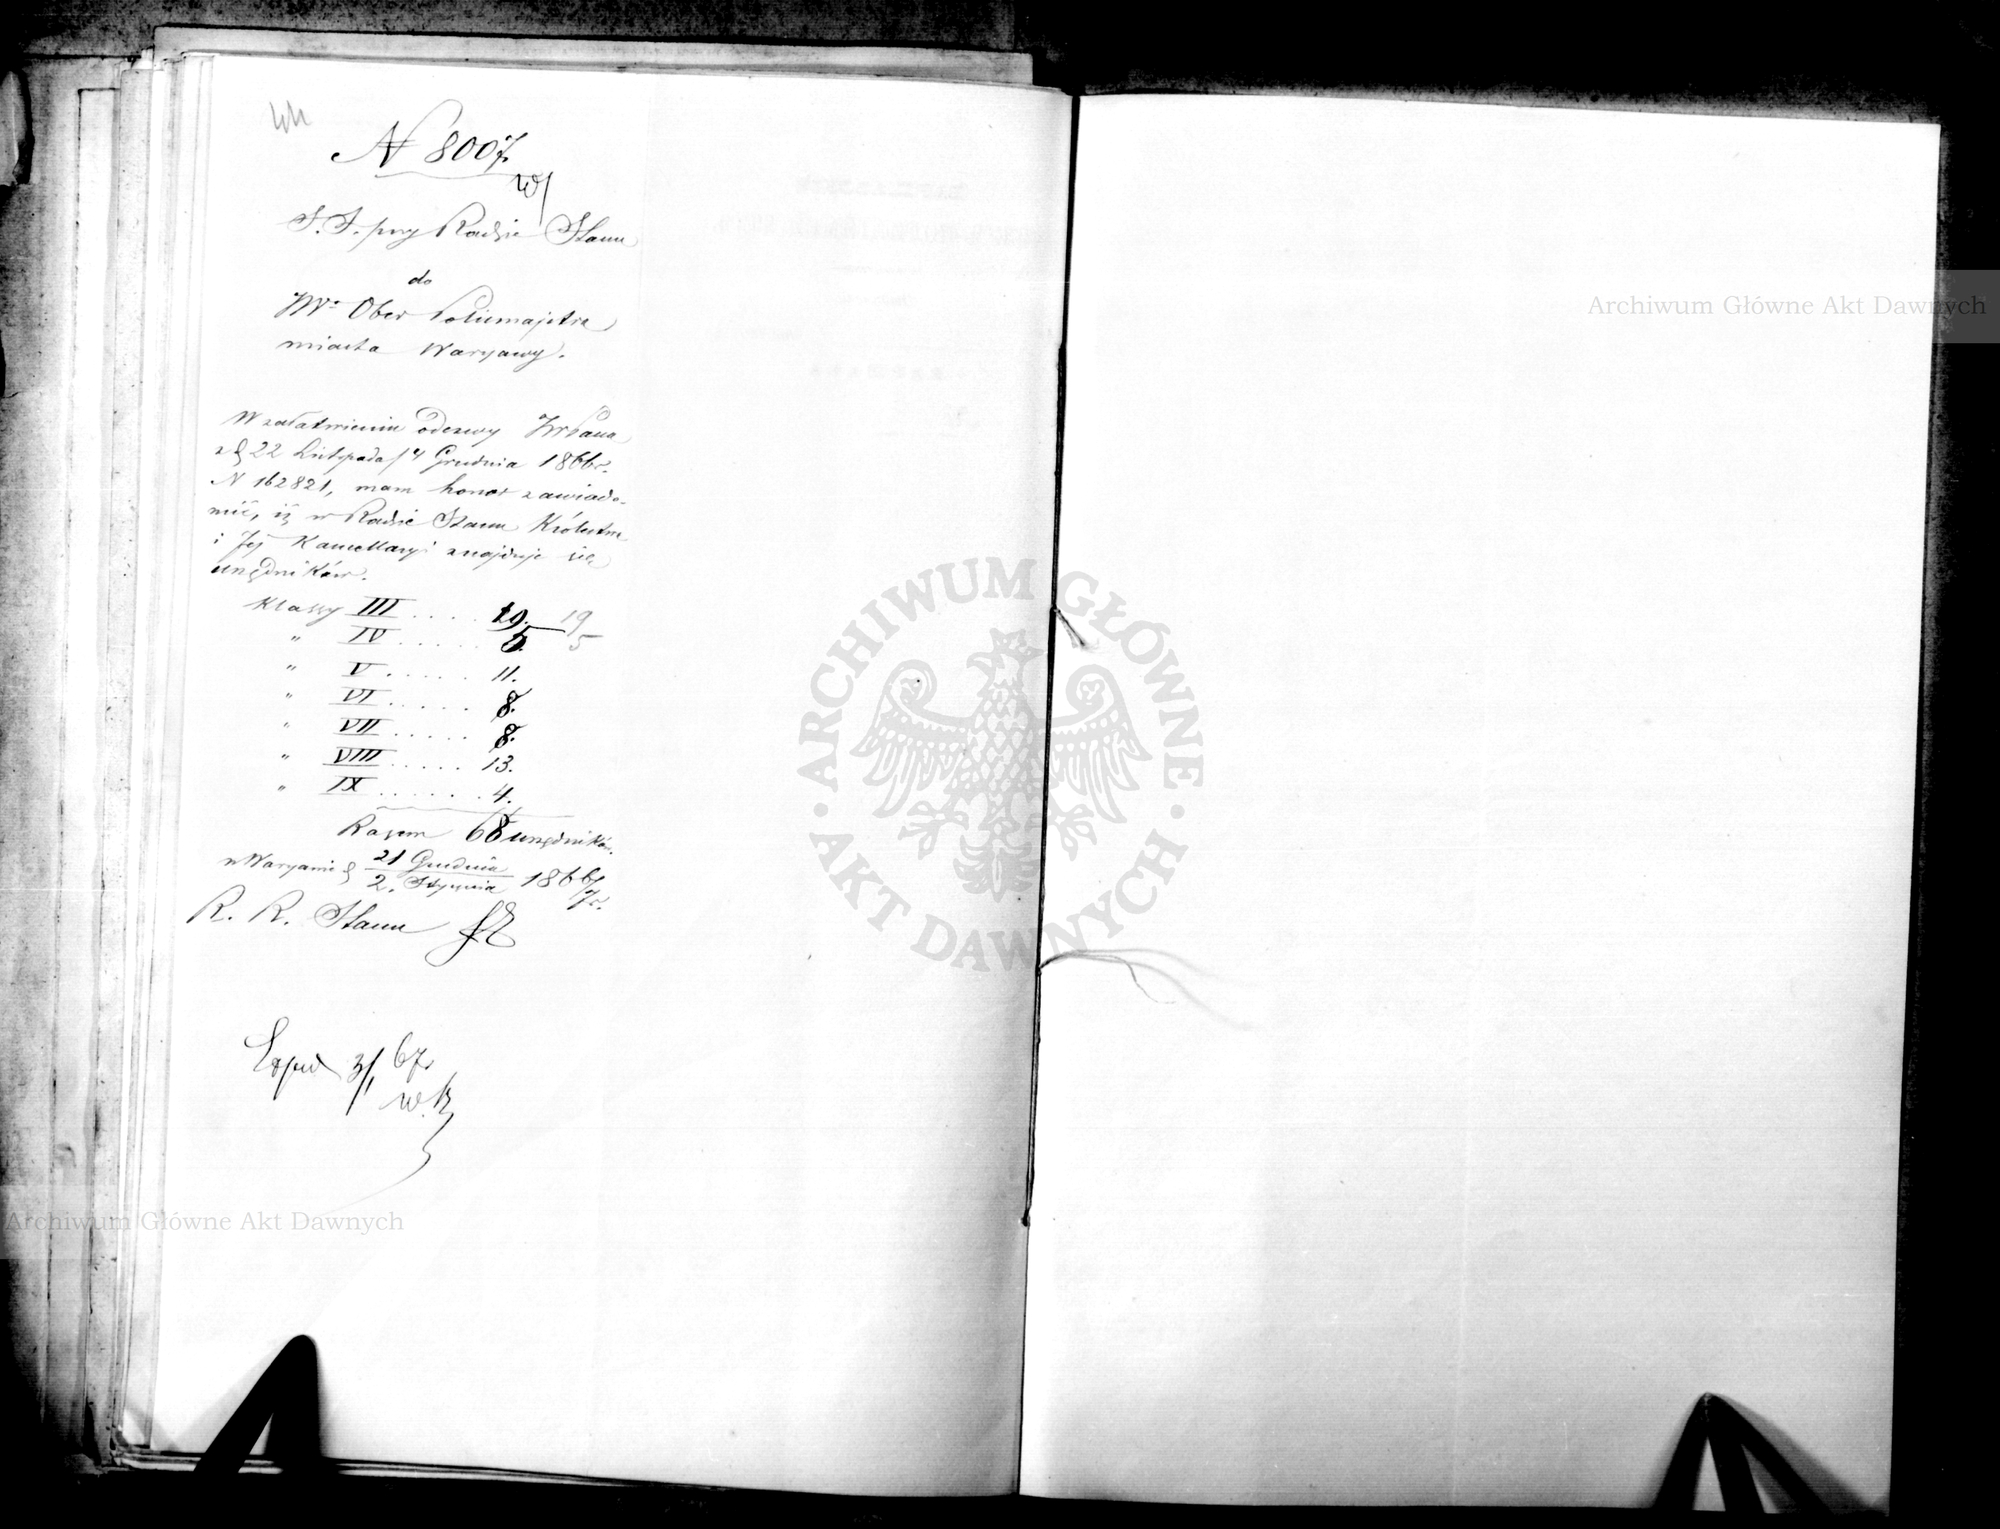 N 8007.
S. S. przy Radzie Stanu
do
JW. Ober Policmajstra
miasta Warszawy.
W załatwieniu odezwy JWPana
z d 22 Listopada/4 Grudnia 1866 r.
N 162821, mam honor zawiado-
mić, iż w Radzie Stanu Królestwa
i Jej Kancellaryi znajduje się
urzędników.
Klassy III .... 19. 19
" IV ..... 5. 5
" V ...... 11.
" VI ...... 8.
" VII ..... 8.
" VIII ..... 13.
" IX ...... 4.
Razem 68 urzędników.
w Warszawie d 21 Grudnia / 2. Stycznia 1866/7 r.
R. R. Stanu
Exped 3/1 67
Archiwum Główne Akt Dawnych
ARCHIWUM GŁÓWNE
AKT DAWNYCH
Archiwum Główne Akt Dawnych